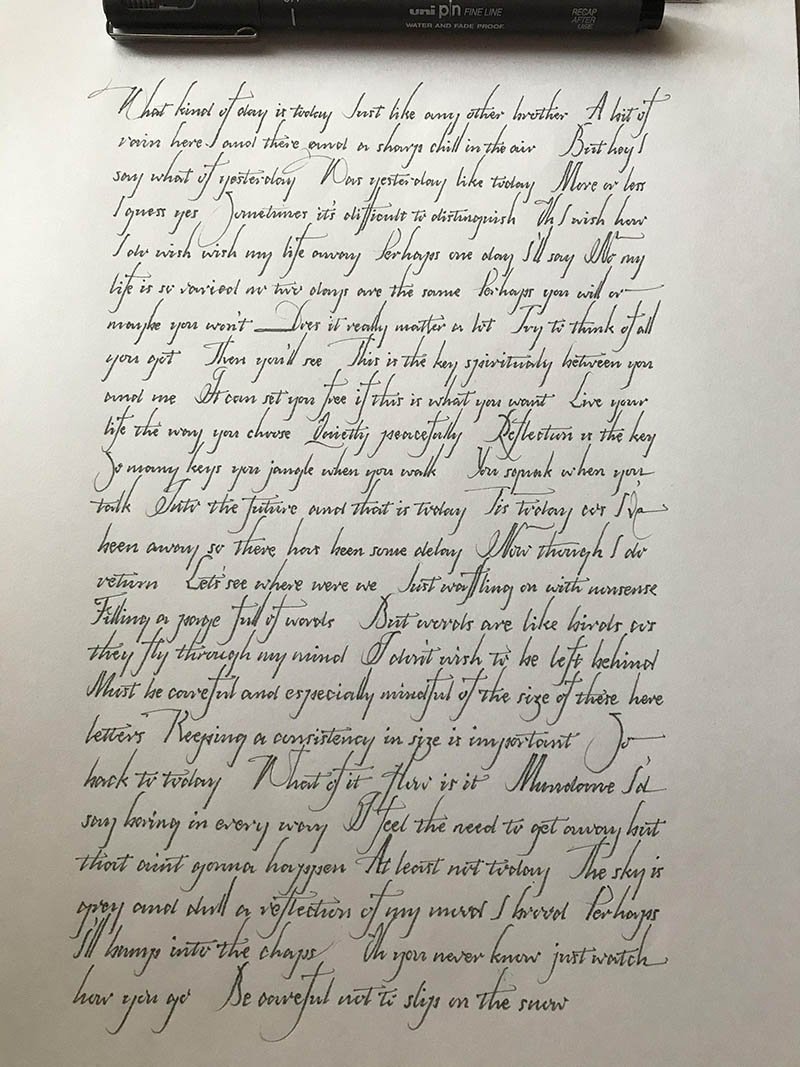 uni pin FINE LINE
WATER AND FADE PROOF
RECAP
AFTER
USE
What kind of day is today Just like any other brother A bit of
rain here I and there and a sharp chill in the air But hey I
say what of yesterday Was yesterday like today More or less
I guess yes Sometimes it's difficult to distinguish Oh I wish how
I do wish wish my life away Perhaps one day I'll say No my
life is so varied no two days are the same Perhaps you will or
maybe you won't Does it really matter a lot Try to think of all
you got Then you'll see This is the key spiritualy between you
and me It can set you free if this is what you want Live your
life the way you choose Quietly peacefully Reflection is the key
So many keys you jangle when you walk You squeak when you
talk Into the future and that is today Tis today as I've
been away so there has been some delay Now though I do
return Lets' see where were we Just waffling on with nonsense
Filling a page full of words But words are like birds as
they fly through my mind I don't wish to be left behind
Must be careful and especially mindful of the size of these here
letters Keeping a consistency in size is important So
back to today What of it How is it Mundane I'd
say boring in every way I feel the need to get away but
that aint gonna happen At least not today The sky is
grey and dull a reflection of my mood I brood Perhaps
I'll bump into the chaps Oh you never know just watch
how you go Be careful not to slip on the snow